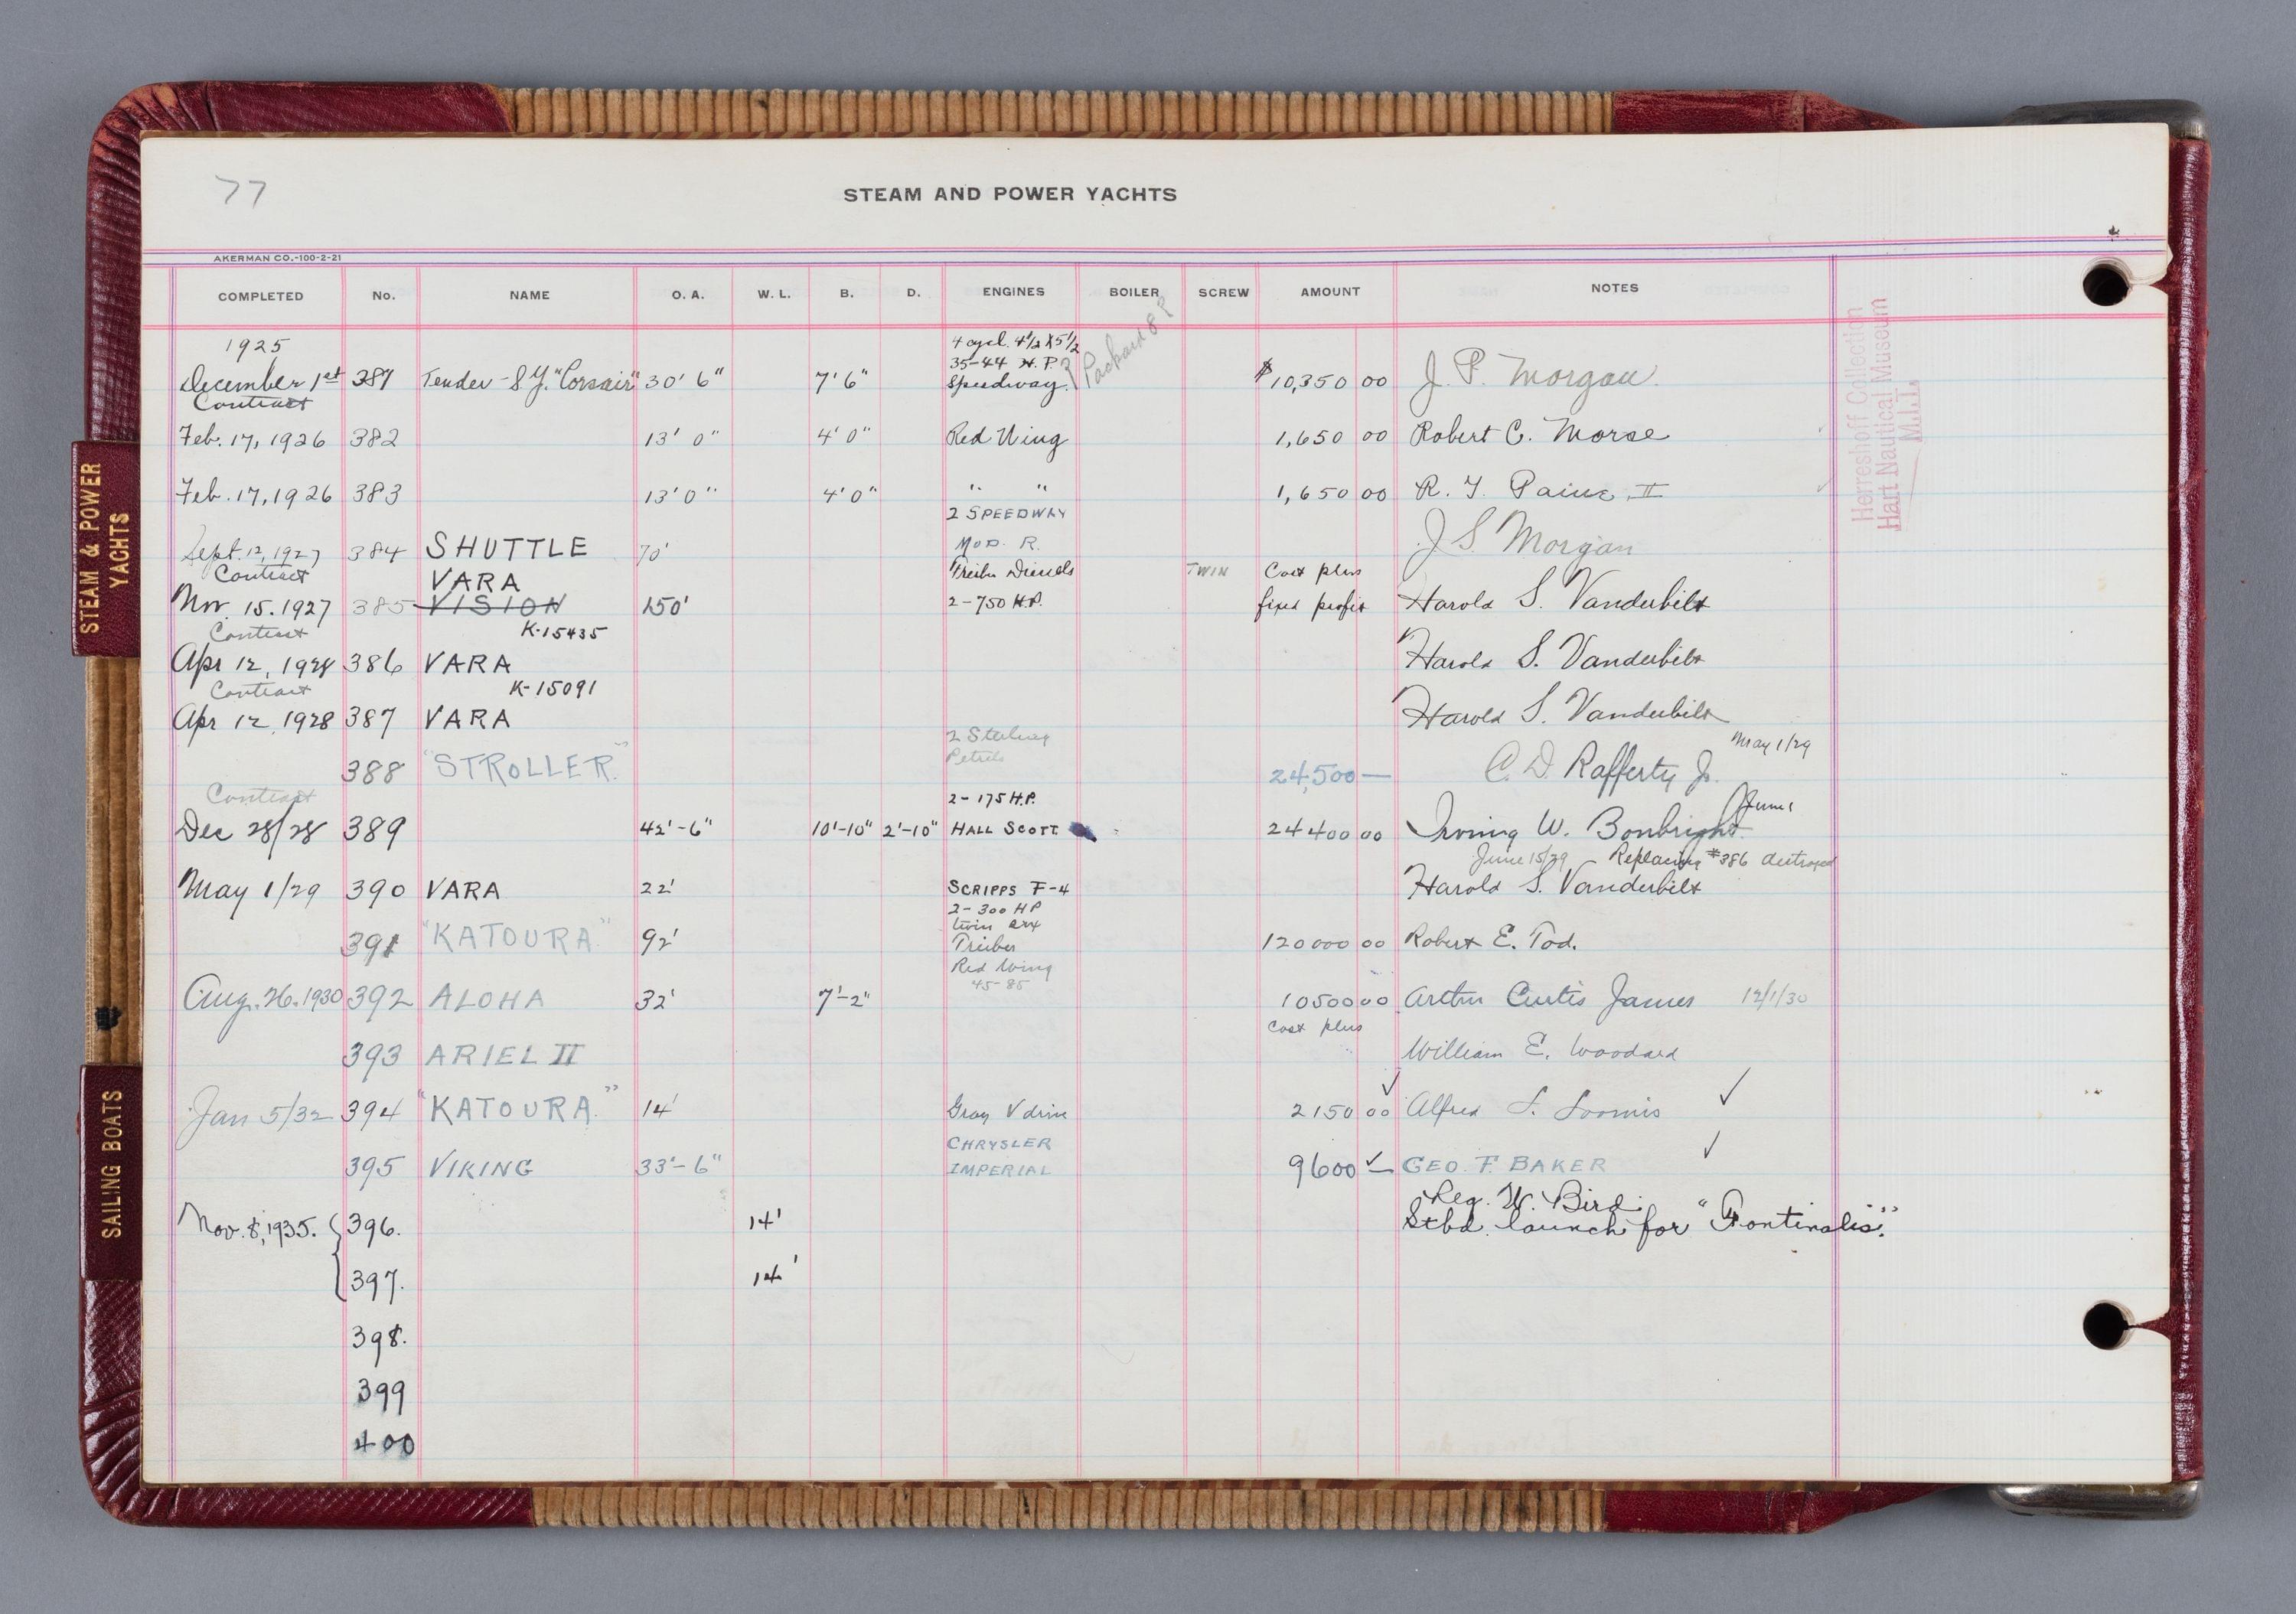 77
STEAM AND POWER YACHTS
AKERMAN CO.-100-2-21
COMPLETED No. NAME O. A. W. L. B. D. ENGINES BOILER SCREW AMOUNT NOTES
1925
4 cycl. 4 1/2 x 5 1/2
35-44 H.P.
December 1st 381 Tender - S.Y. "Corsair" 30' 6" 7' 6" Speedway ? Packard 8 ? $10,350 00 J. P. Morgan.
Contract
Feb. 17, 1926 382 13' 0" 4' 0" Red Wing 1,650 00 Robert C. Morse
Feb. 17, 1926 383 13' 0" 4' 0" " " 1,650 00 R. T. Paine, II
2 SPEEDWAY
Sept. 12, 1927 384 SHUTTLE 70' MOD. R. J S. Morgan
Contract VARA Treiber Diesels TWIN Cost plus
Nov. 15. 1927 385 VISION 150' 2-750 H.P. fixed profit Harold S. Vanderbilt
Contract K-15435
Apr 12, 1928 386 VARA Harold S. Vanderbilt
Contract K-15091
Apr 12, 1928 387 VARA Harold S. Vanderbilt
2 Sterling May 1/29
388 "STROLLER." Petrels 24,500 — C. D. Rafferty Jr.
Contract 2-175 H.P. June 1
Dec 28/28 389 42'-6" 10'-10" 2'-10" HALL SCOTT 24400 00 Irving W. Bonbright
June 15/29 Replacing #386 destroyed
May 1/29 390 VARA 22' SCRIPPS F-4 Harold S. Vanderbilt
2-300 HP
twin
391 "KATOURA" 92' Treiber 120000 00 Robert E. Tod.
Red Wing
45-85
Aug. 26. 1930 392 ALOHA 32' 7'-2" 10500 00 Arthur Curtis James 12/1/30
Cost plus
393 ARIEL II William E. Woodard
Jan 5/32 394 "KATOURA." 14' Gray V drive 2150 00 ✓ Alfred L. Loomis ✓
CHRYSLER
395 VIKING 33'-6" IMPERIAL 9600 ✓— GEO. F. BAKER ✓
Reg. W. Bird.
Nov. 8, 1935. 396. 14' Stbd. launch for "Fontinalis."
397. 14'
398.
399
400
Herreshoff Collection
Hart Nautical Museum
M.I.T.
STEAM & POWER
YACHTS
SAILING BOATS